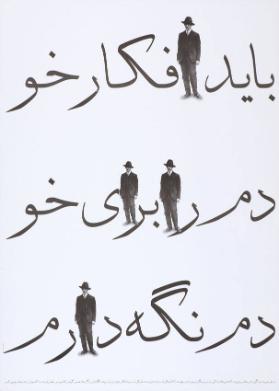 باید افکار خو
دم را برای خو
دم نگه دارم